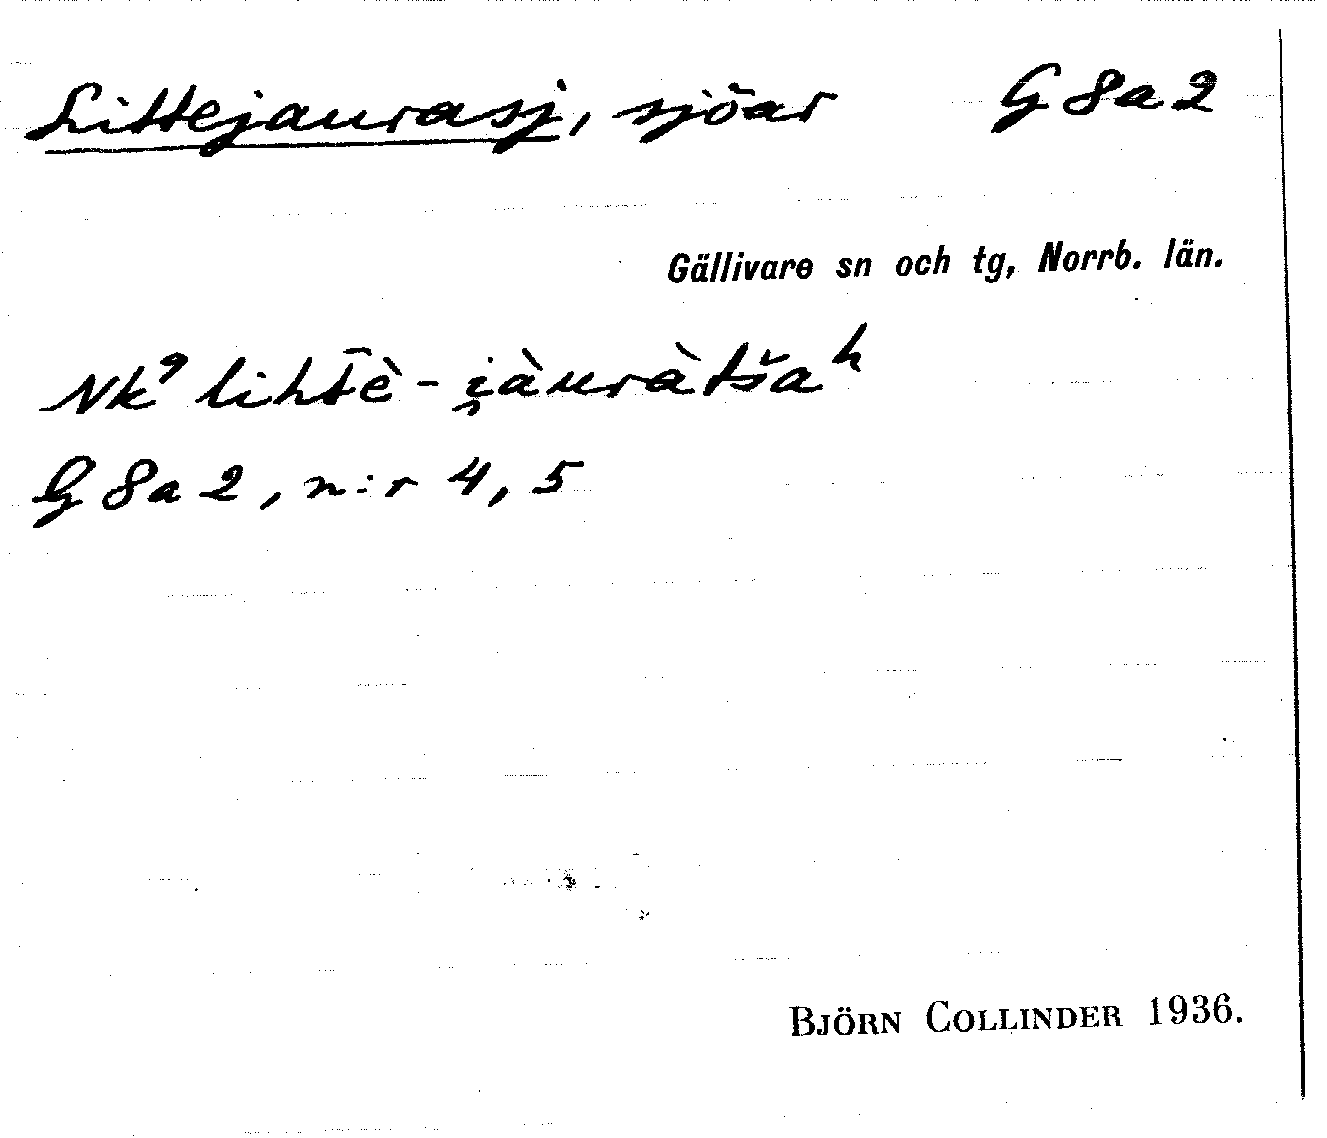 Littejaurasj, sjöar G 8a 2
Gällivare sn och tg, Norrb. län.
Nk⁹ liht̄è - i̯àuràtšaʰ
G 8a 2, n:r 4, 5
BJÖRN COLLINDER 1936.